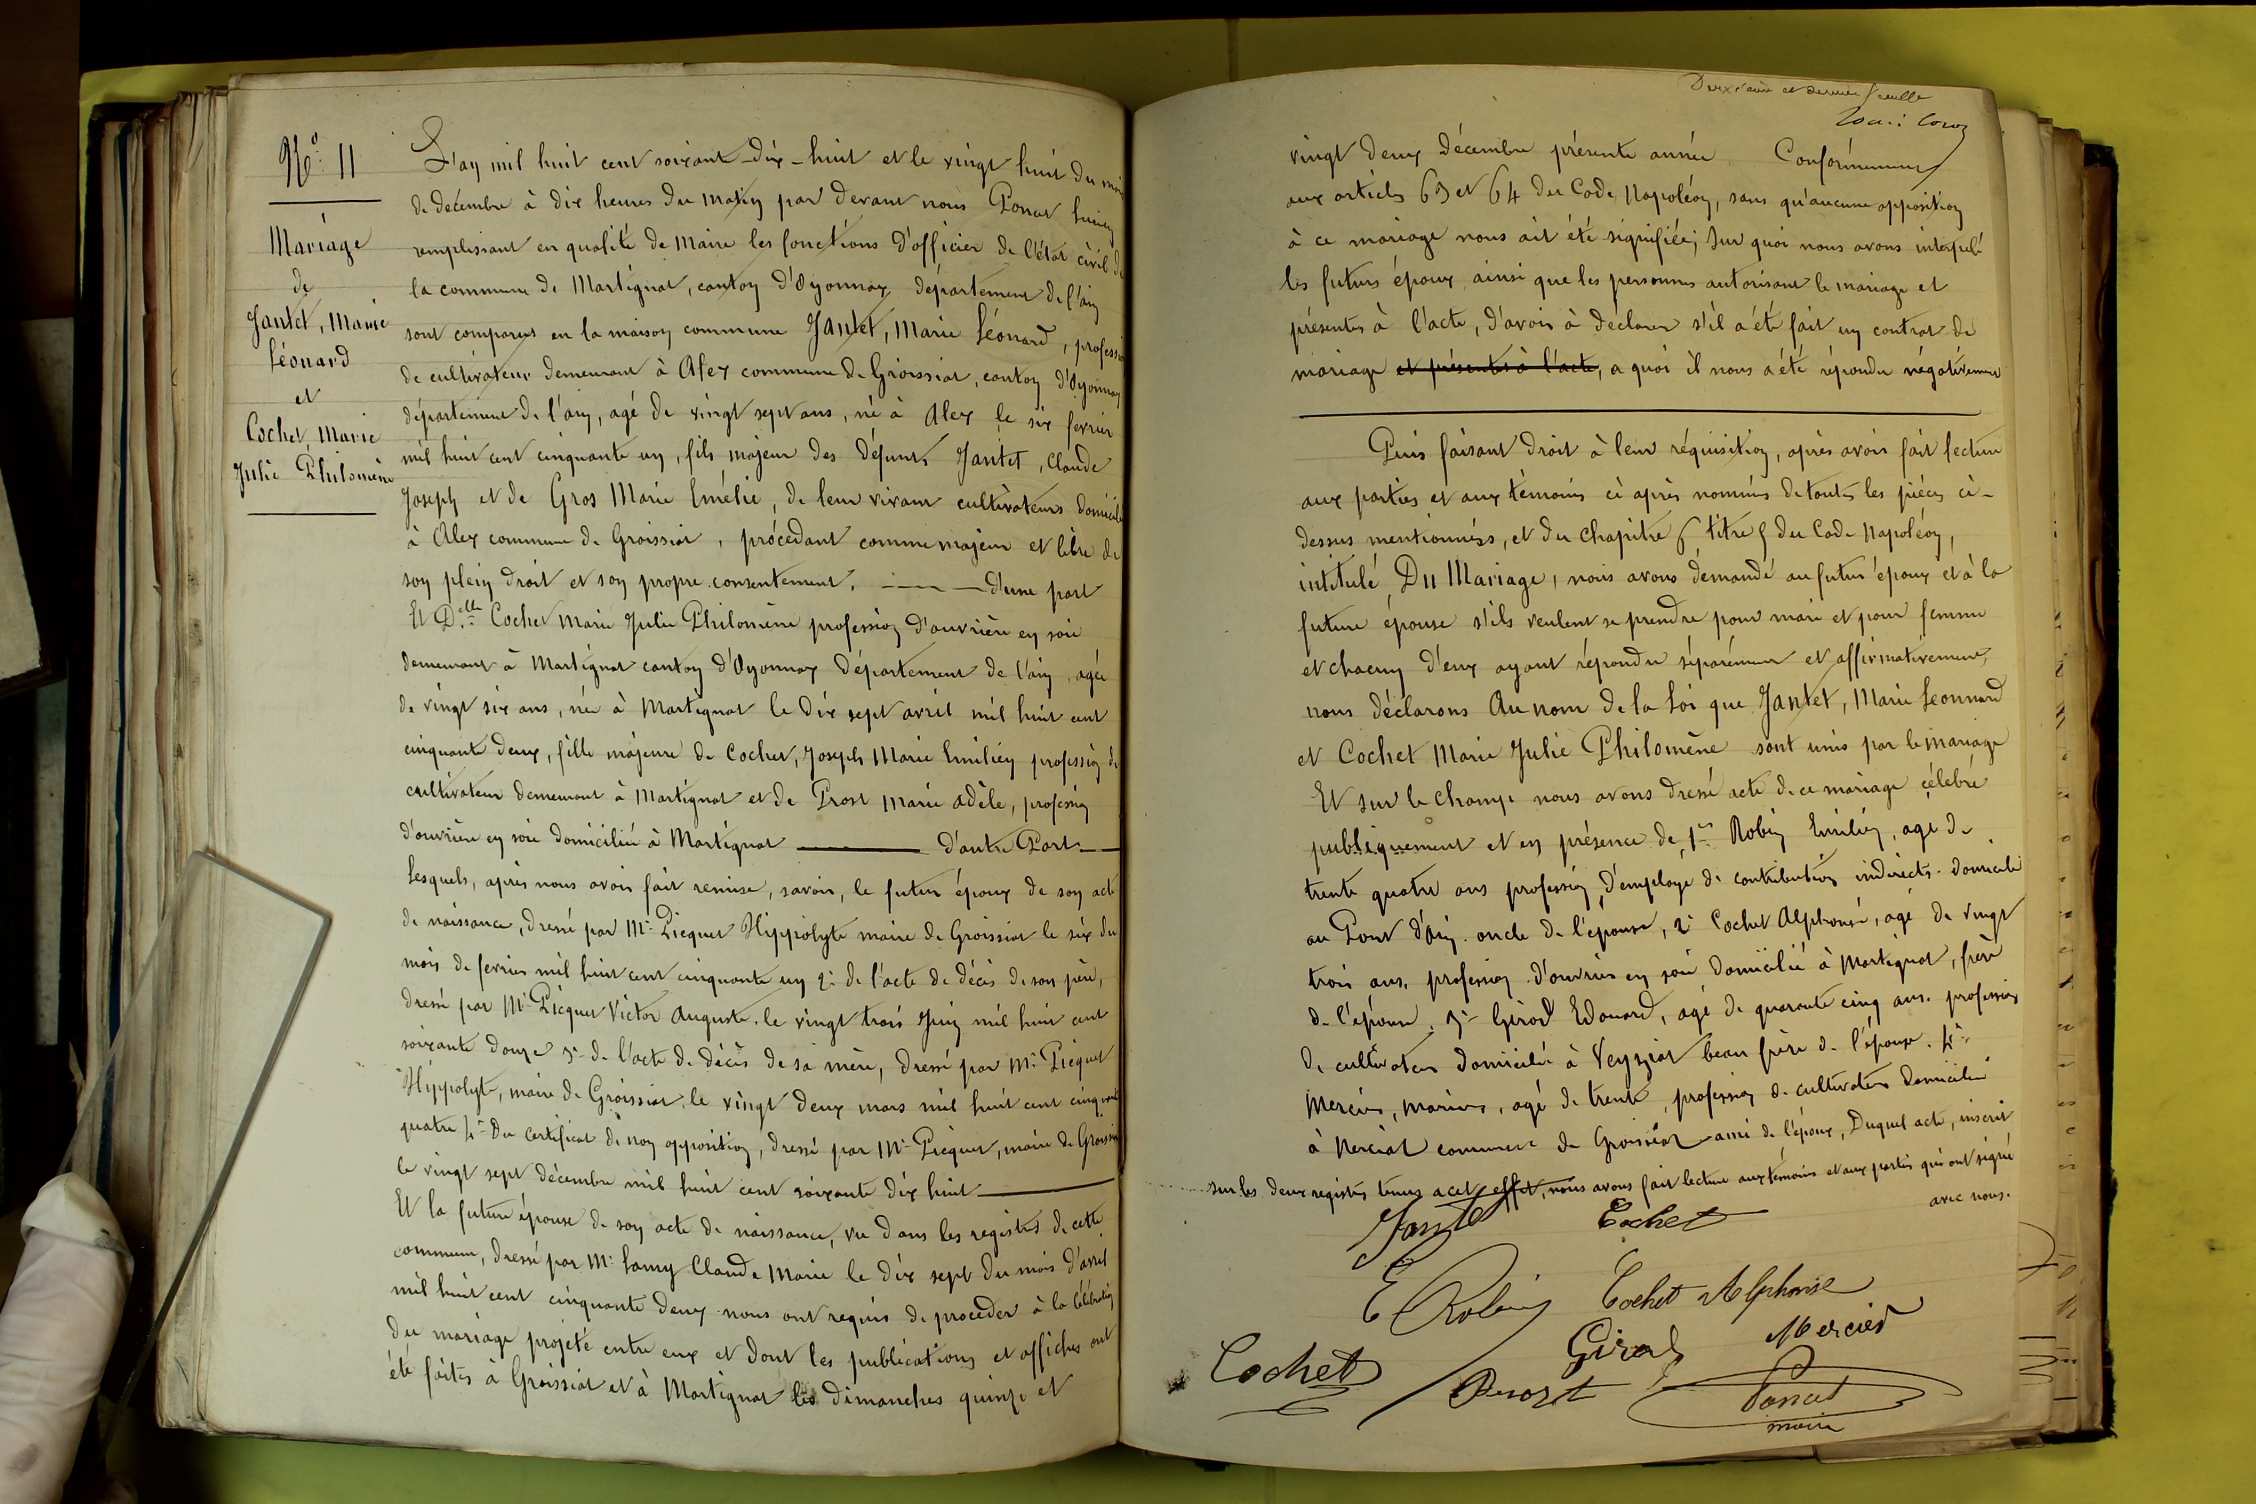 No. 11
Mariage
de
Jantet, Marie
Léonard
et
Cochet Marie
Julie Philomène
L'an mil huit cent soixante-dix-huit et le vingt huit du mois
de décembre à dix heures du matin par devant nous Poncet Lucien
remplissant en qualité de Maire les fonctions d'officier de l'état civil de
la commune de Martignat, canton d'Oyonnax département de l'ain
sont comparus en la maison commune Jantet, Marie Léonard, profession
de cultivateur demeurant à Alex commune de Groissiat, canton d'Oyonnax
département de l'ain, agé de vingt sept ans, né à Alex le six fevrier
mil huit cent cinquante un, fils majeur des défunts Jantet, Claude
Joseph et de Gros Marie Emélie, de leur vivant cultivateurs domiciliés
à Alex commune de Groissiat, procédant comme majeur et libre de
son plein droit et son propre consentement. d'une part
Et Delle Cochet Marie Julie Philomène profession d'ouvrière en soie
demeurant à Martignat canton d'Oyonnax département de l'ain, agée
de vingt six ans, née à Martignat le dix sept avril mil huit cent
cinquante deux, fille majeure de Cochet, Joseph Marie Emilien profession de
cultivateur demeurant à Martignat et de Prost Marie adèle, profession
d'ouvrière en soie domiciliée à Martignat d'autre Part
Lesquels, après nous avoir fait remise, savoir, le futur époux de son acte
de naissance, dressé par Mr Picquet Hippolyte maire de Groissiat le six du
mois de fevrier mil huit cent cinquante un 2° de l'acte de décès de son père,
dressé par Mr Picquet Victor Auguste, le vingt trois Juin mil huit cent
soixante douze 3° de l'acte de décès de sa mère, dressé par Mr Picquet
Hippolyte, maire de Groissiat, le vingt deux mars mil huit cent cinquante
quatre 4° du certificat de non opposition, dressé par Mr Picquet, maire de Groissiat
le vingt sept décembre mil huit cent soixante dix huit
Et la future épouse de son acte de naissance, vu dans les registres de cette
commune, dressé par Mr Lamy Claude Marie le dix sept du mois d'avril
mil huit cent cinquante deux nous ont requis de procéder à la célébration
du mariage projeté entre eux et dont les publications et affiches ont
été faites à Groissiat et à Martignat les dimanches quinze et
Deuxième et dernière feuille
vingt deux décembre présente année Conformément
aux articles 63 et 64 du Code Napoléon, sans qu'aucune opposition
à ce mariage nous ait été signifiée; Sur quoi nous avons interpelé
les futurs époux, ainsi que les personnes autorisant le mariage et
présentes à l'acte, d'avoir à déclarer s'il a été fait un contrat de
mariage et présentes à l'acte, a quoi il nous a été répondu négativement
Puis faisant droit à leur réquisition, après avoir fait lecture
aux parties et aux témoins ci après nommés de toutes les pièces ci-
dessus mentionnées, et du chapitre 6 titre 5 du Code Napoléon,
intitulé, Du Mariage, nous avons demandé au futur époux et à la
future épouse s'ils veulent se prendre pour mari et pour femme
et chacun d'eux ayant répondu séparément et affirmativement,
nous déclarons Au nom de la Loi que Jantet, Marie Leonnard
et Cochet Marie Julie Philomène sont unis par le mariage
Et sur le champ nous avons dressé acte de ce mariage célebré
publiquement et en présence de, 1er Robin Emilien, agé de
trente quatre ans profession d'employé de contributions indirects. domicilié
au Pont d'Ain. oncle de l'épouse, 2° Cochet Alphonse, agé de vingt
trois ans, profession d'ouvrier en soie domicilié à Martignat, frère
de l'épouse, 3° Girod Edouard, agé de quarante cinq ans, profession
de cultivateur domicilié à Veyziat beau frère de l'épouse. 4°
Mercier, Marius, agé de trente, profession de cultivateur domicilié
à Nerciat commune de Groissiat ami de l'époux, Duquel acte, inscrit
sur les deux registres tenus a cet effet, nous avons fait lecture aux témoins et aux parties qui ont signé
avec nous.
Jantet Cochet
E Robin Cochet Alphonse
Girod Mercier
Cochet Prost Poncet
maire